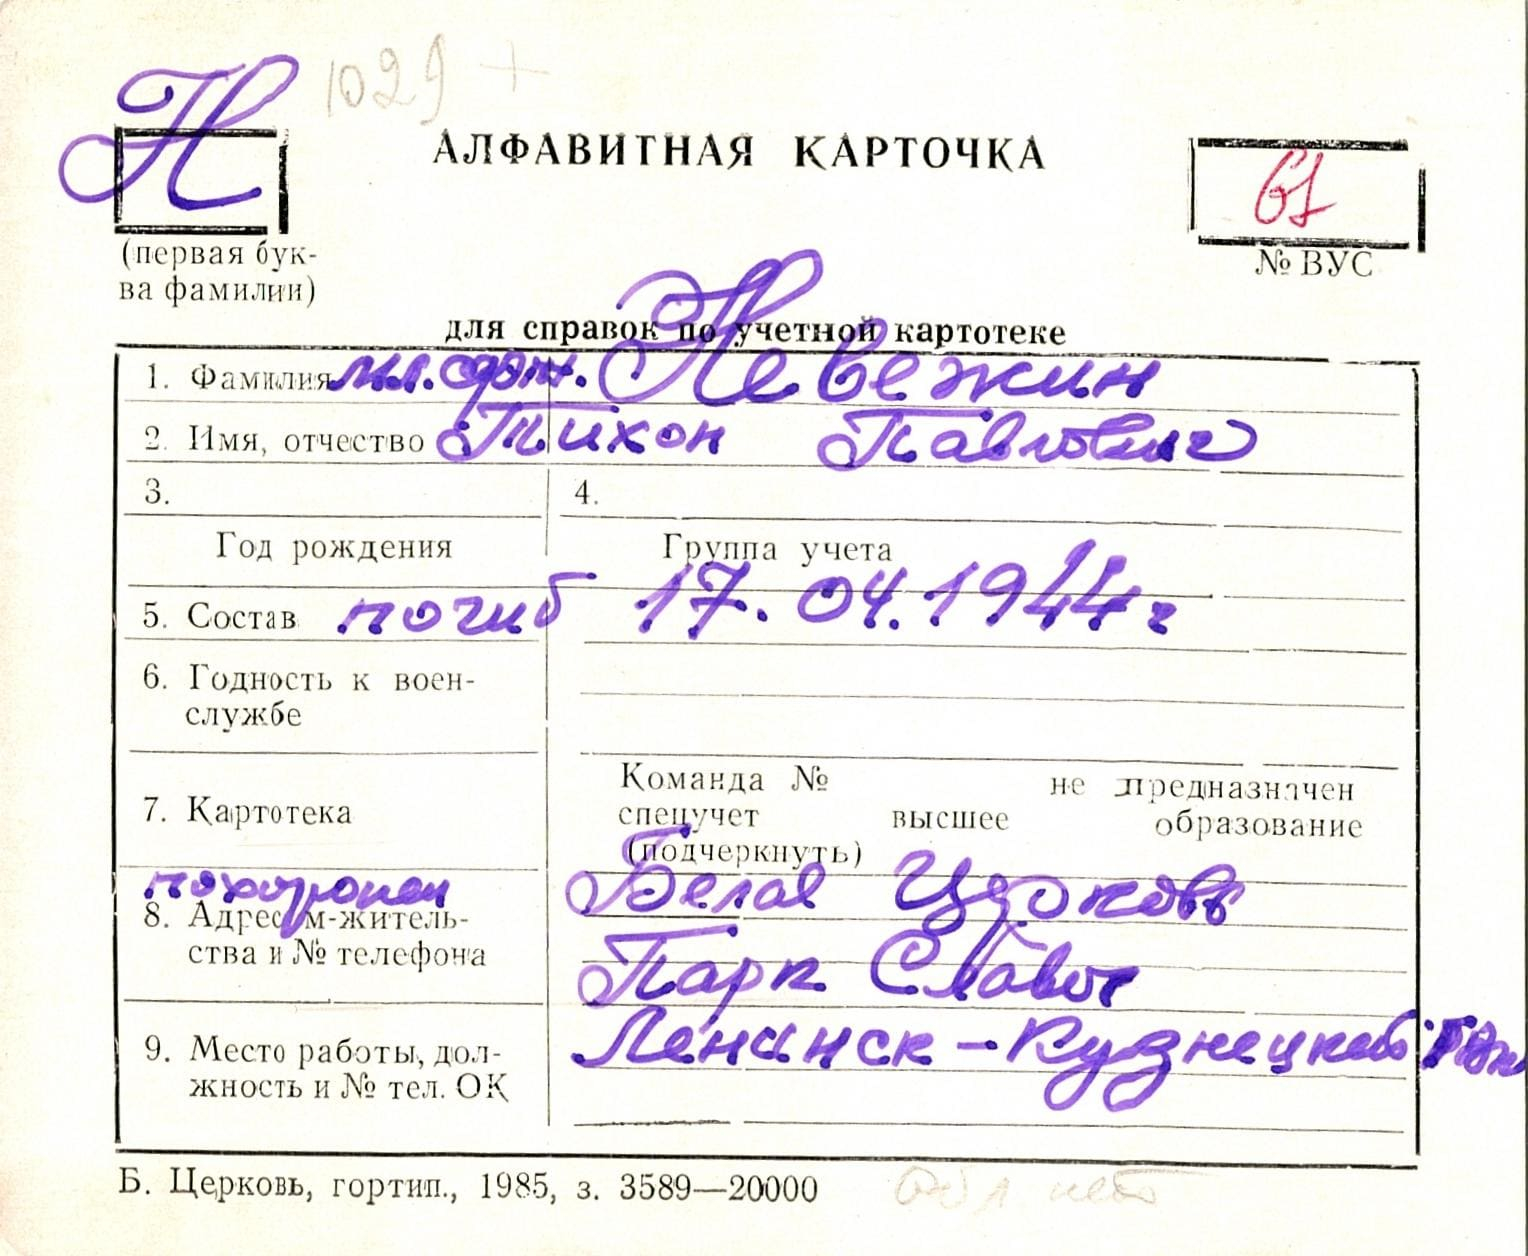 Н 1029 +
АЛФАВИТНАЯ КАРТОЧКА
61
(первая бук-
ва фамилии)
№ ВУС
для справок по учетной картотеке
1. Фамилия мл. серж. Невежин
2. Имя, отчество Тихон Павлович
3. 4.
Год рождения Группа учета
5. Состав погиб 17.04.1944 г
6. Годность к воен-
службе
7. Картотека
Команда № не предназначен
спецучет высшее образование
(подчеркнуть)
похоронен Белая Церковь
8. Адрес м-житель-
ства и № телефона
Парк Славы
Ленинск-Кузнецкий
9. Место работы, дол-
жность и № тел. ОК
Б. Церковь, гортип., 1985, з. 3589—20000